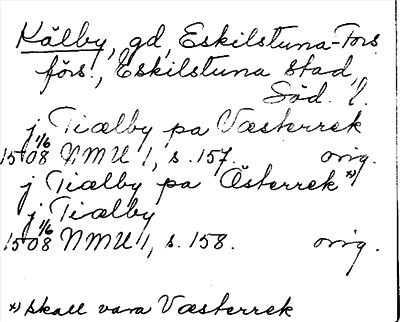 Kälby, gd, Eskilstuna-Fors
förs., Eskilstuna stad,
Söd. l.
j Tiælby pa Væsterrek
1508 1/6 NMU 1, s. 157. orig.
j Tiælby pa Österrek *)
j Tiælby
1508 1/6 NMU 1, s. 158. orig.
*) skall vara Væsterrek